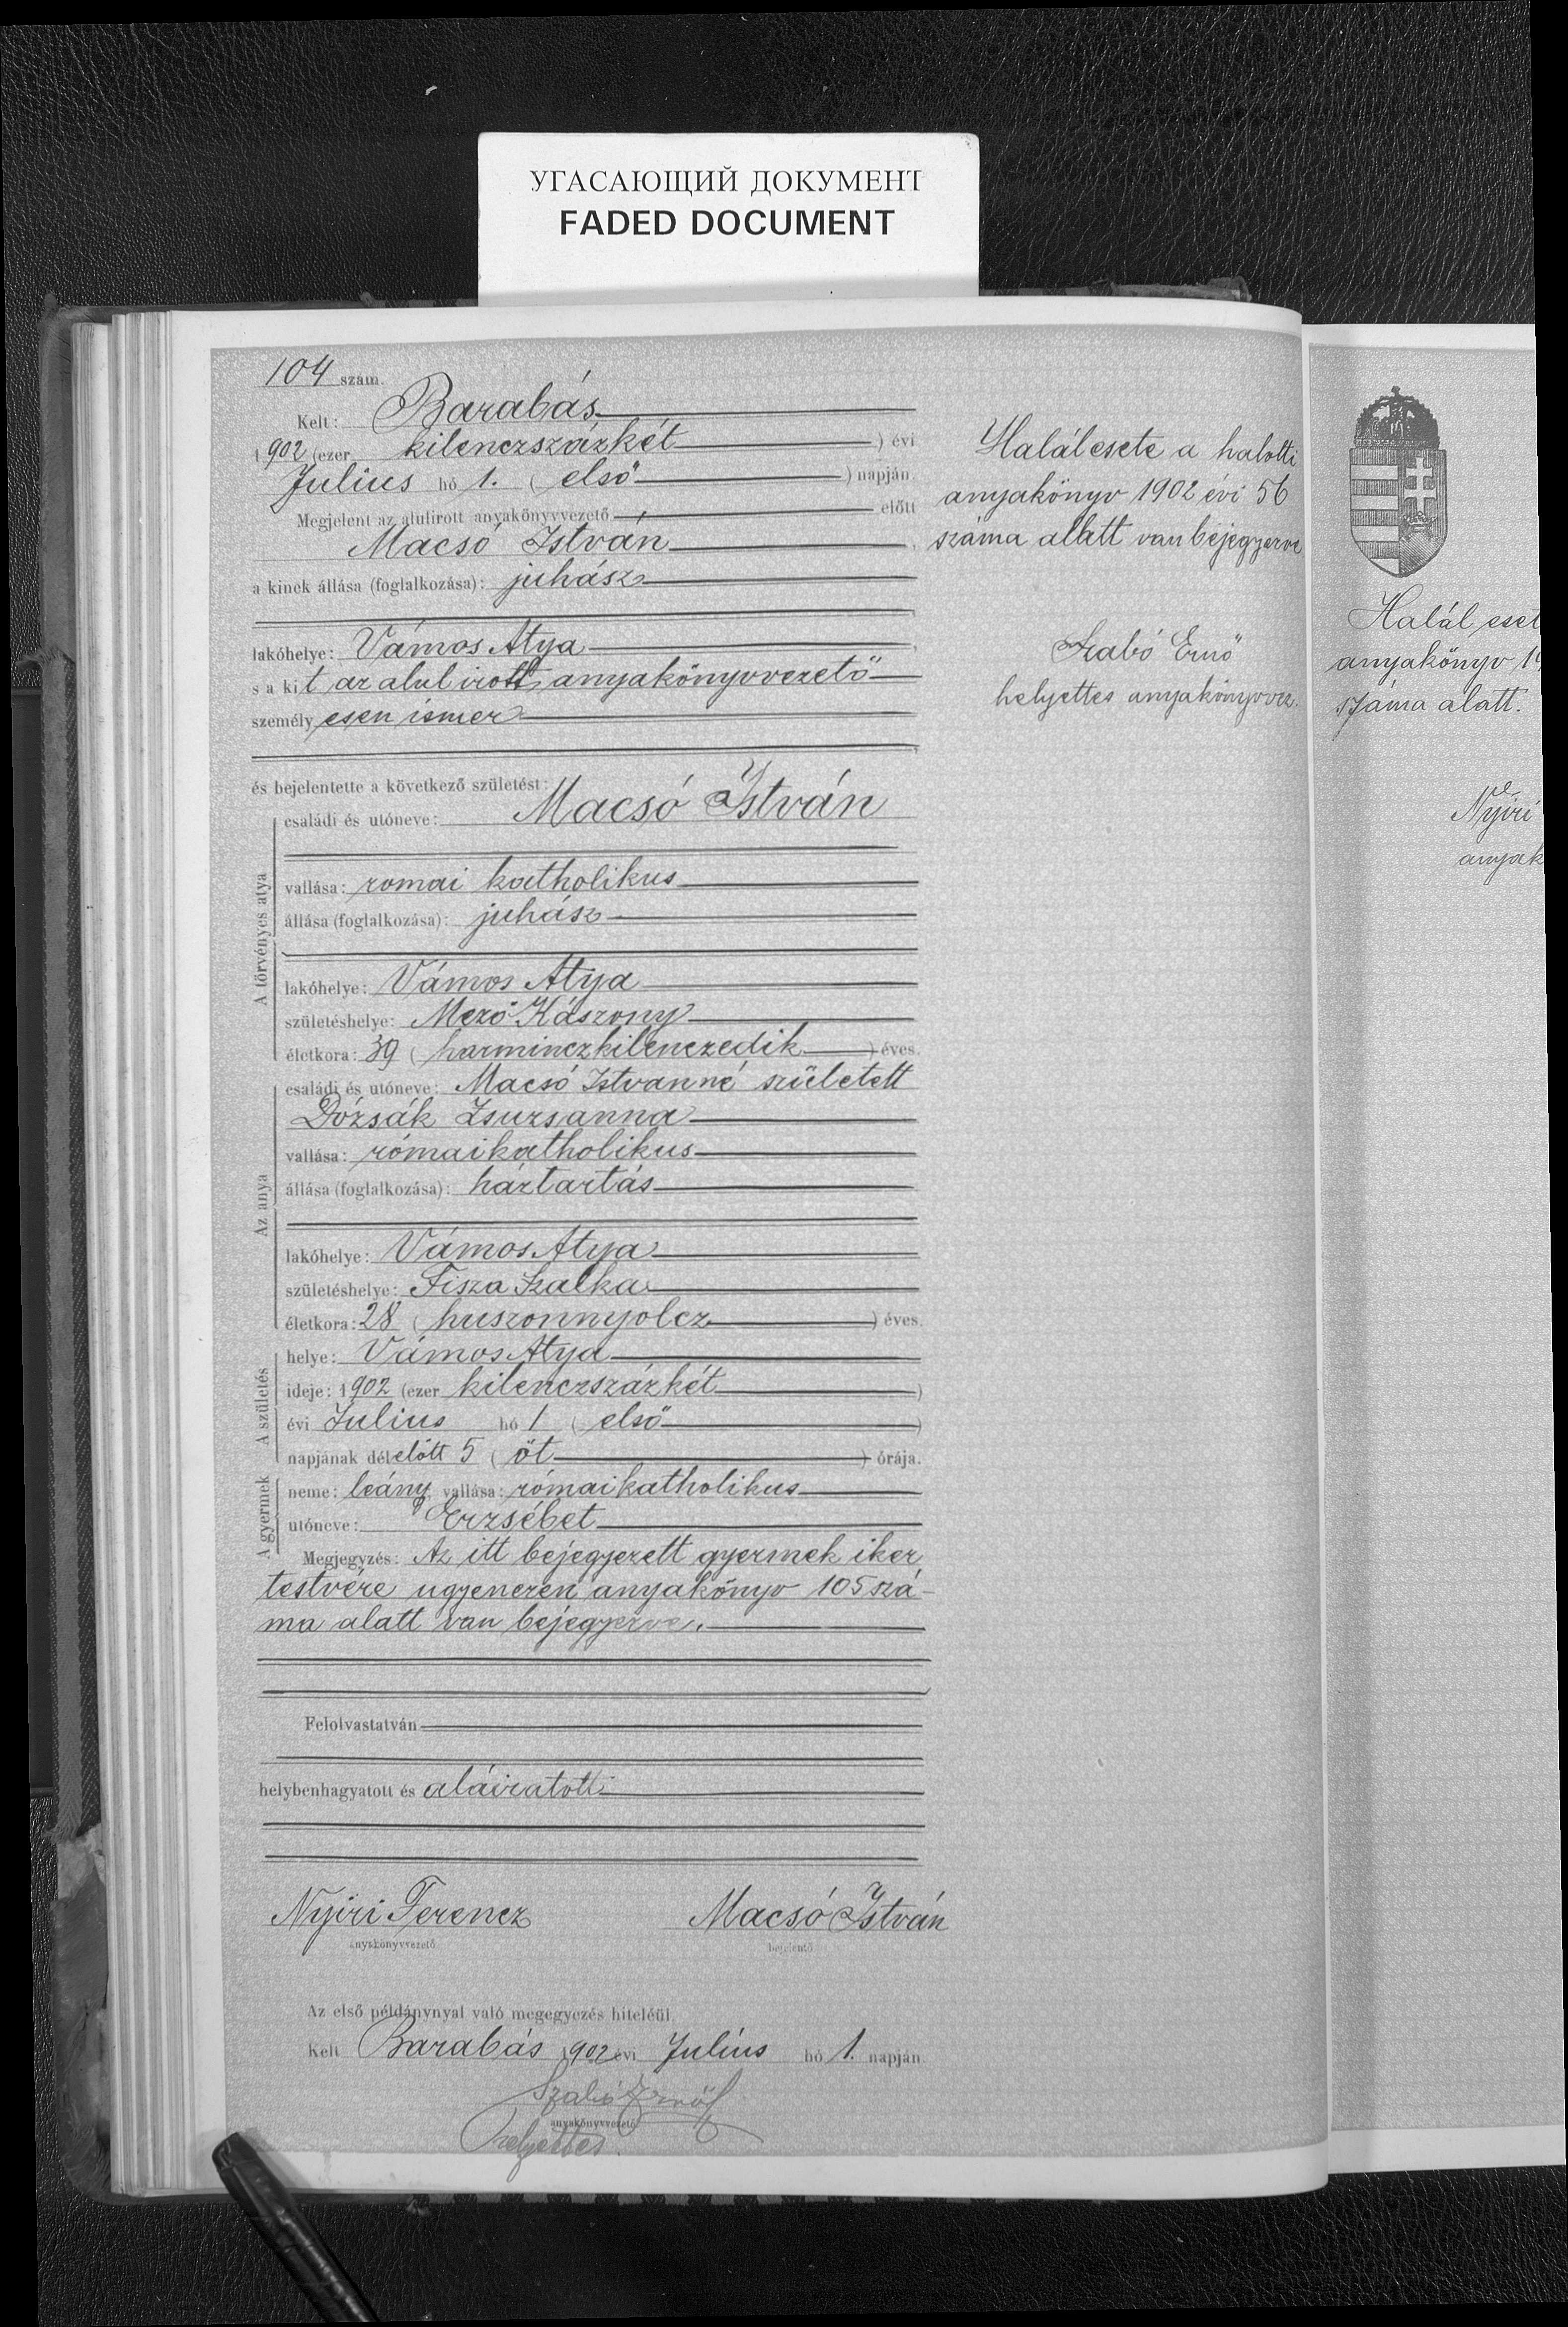 УГАСАЮЩИЙ ДОКУМЕНТ
FADED DOCUMENT
104 szám.
Kelt: Barabás
1902 (ezer kilenczszázkét ) évi
Julius hó 1. ( első ) napján.
Megjelent az alulirott anyakönyvvezető előtt
Macsó István,
a kinek állása (foglalkozása): juhász
lakóhelye: Vámos Atya,
s a kit az alul irott anyakönyvvezető
személyesen ismer
és bejelentette a következő születést:
A törvényes atya
családi és utóneve: Macsó István
vallása: romai katholikus
állása (foglalkozása): juhász
lakóhelye: Vámos Atya
születéshelye: Mező Kászony
életkora: 39 ( harminczkilenczedik ) éves.
Az anya
családi és utóneve: Macsó Istvanné született
Dózsák Zsuzsanna
vallása: rómaikatholikus
állása (foglalkozása): háztartás
lakóhelye: Vámos Atya
születéshelye: Tisza Szalka
életkora: 28 ( huszonnyolcz ) éves.
A születés
helye: Vámos Atya
ideje: 1902 (ezer kilenczszázkét )
évi Julius hó 1 ( első )
napjának délelőtt 5 ( öt ) órája.
A gyermek
neme: leány, vallása: rómaikatholikus
utóneve: Erzsébet
Megjegyzés: Az itt bejegyzett gyermek iker
testvére ugyenezen anyakönyv 105 szá-
ma alatt van bejegyezve.
Felolvastatván
helybenhagyatott és aláiratott
Nyiri Ferencz Macsó István
anyakönyvvezető bejelentő
Az első példánynyal való megegyezés hiteléül.
Kelt Barabás 1902 évi Július hó 1. napján.
Szabó Ernő
anyakönyvvezető
helyettes.
Halálesete a halotti
anyakönyv 1902 évi 56
száma alatt van bejegyezve
Szabó Ernő
helyettes anyakönyvvez.
Halál eset
anyakönyv 19
száma alatt.
Nyiri
anyak